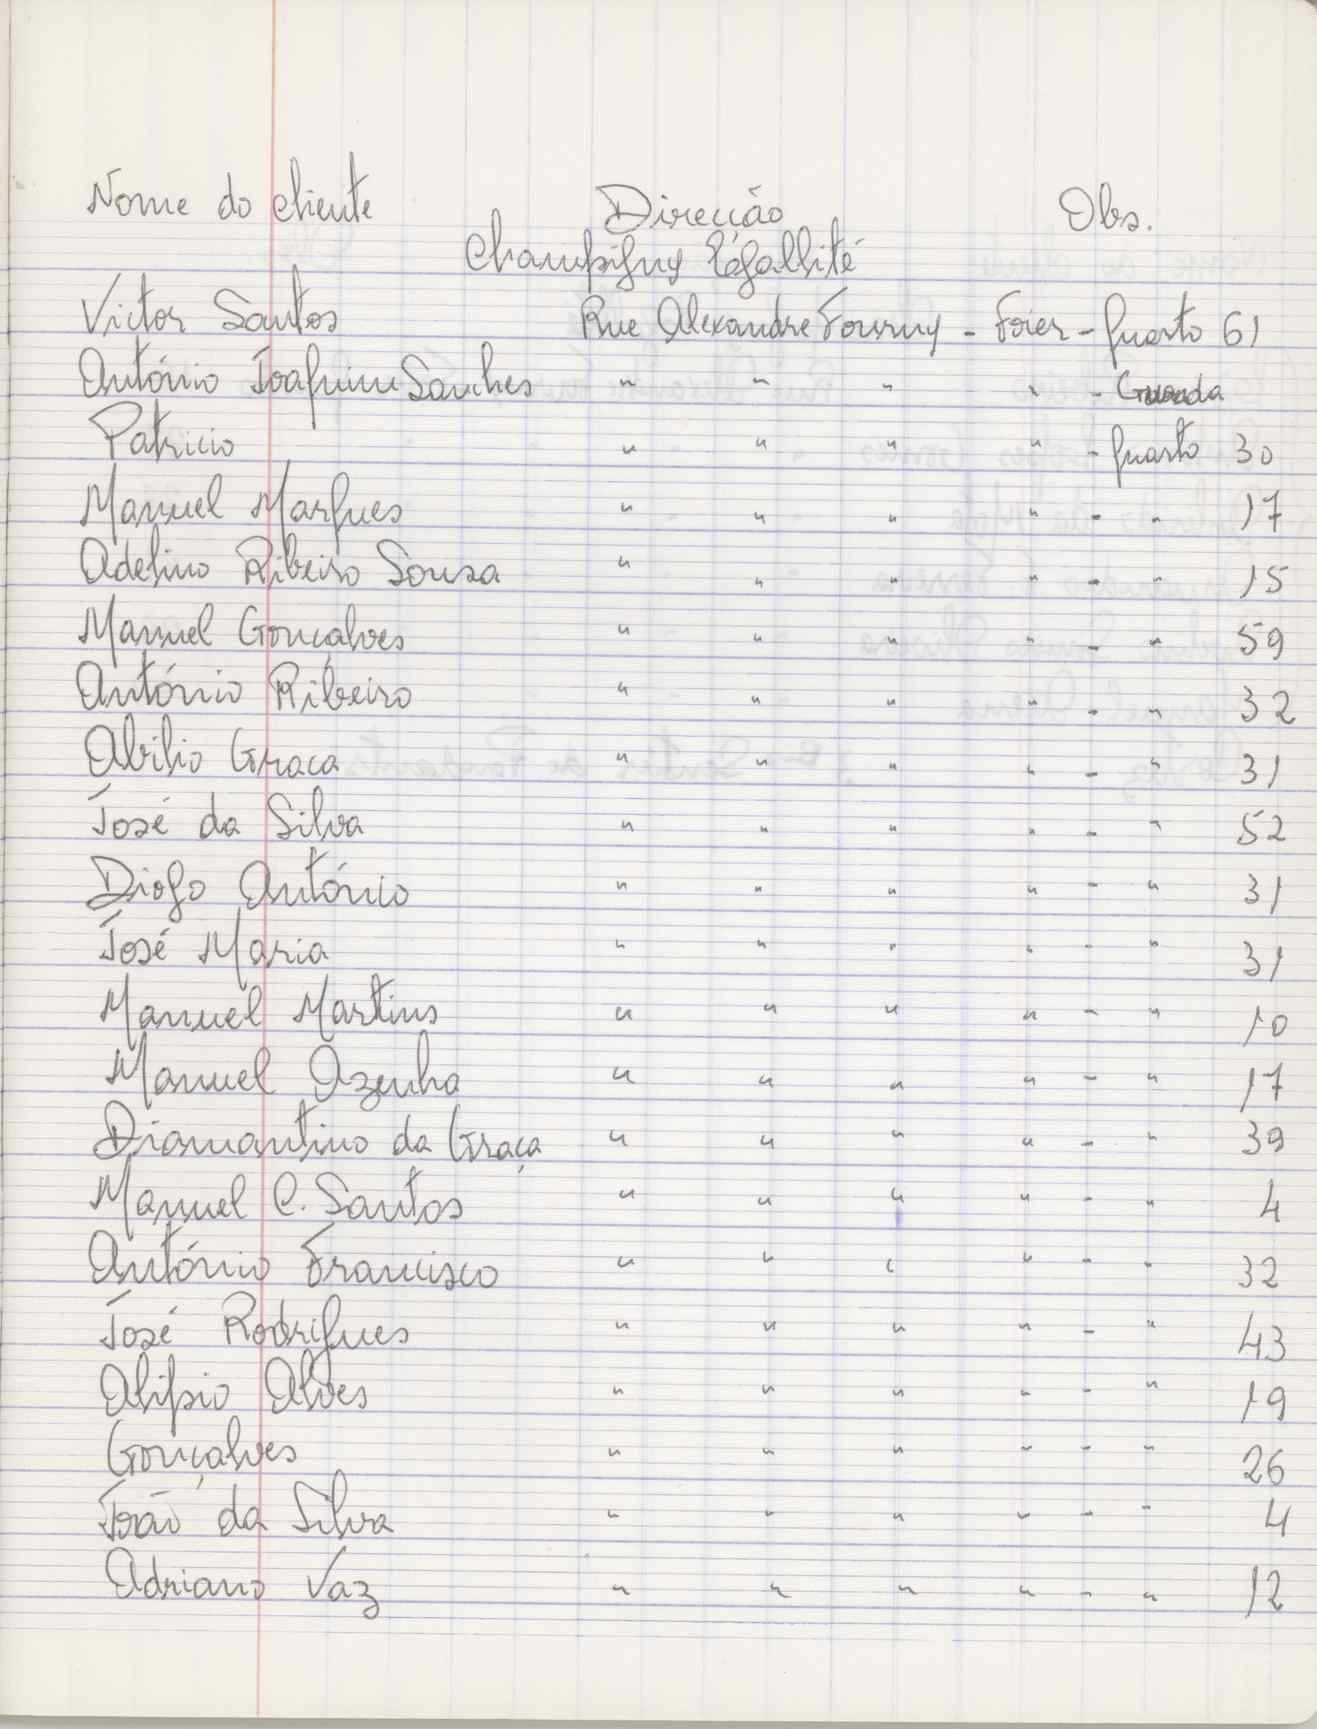 Nome do cliente Direcção Obs.
Champigny l'égallité
Victor Santos Rue Alexandre Fourny - Foier - quarto 61
António Joaquim Sanches " " " " - Guarda
Patricio " " " " - quarto 30
Manuel Marques " " " " - " 17
Adelino Ribeiro Sousa " " " " - " 15
Manuel Gonçalves " " " " - " 59
António Ribeiro " " " " - " 32
Abilio Graca " " " " - " 31
José da Silva " " " " - " 52
Diogo António " " " " - " 31
José Maria " " " " - " 31
Manuel Martins " " " " - " 10
Manuel Azenha " " " " - " 17
Diamantino da Graça " " " " - " 39
Manuel C. Santos " " " " - " 4
António Francisco " " " " - " 32
José Rodrigues " " " " - " 43
Alipio Alves " " " " - " 19
Gonçalves " " " " - " 26
João da Silva " " " " - " 4
Adriano Vaz " " " " - " 12